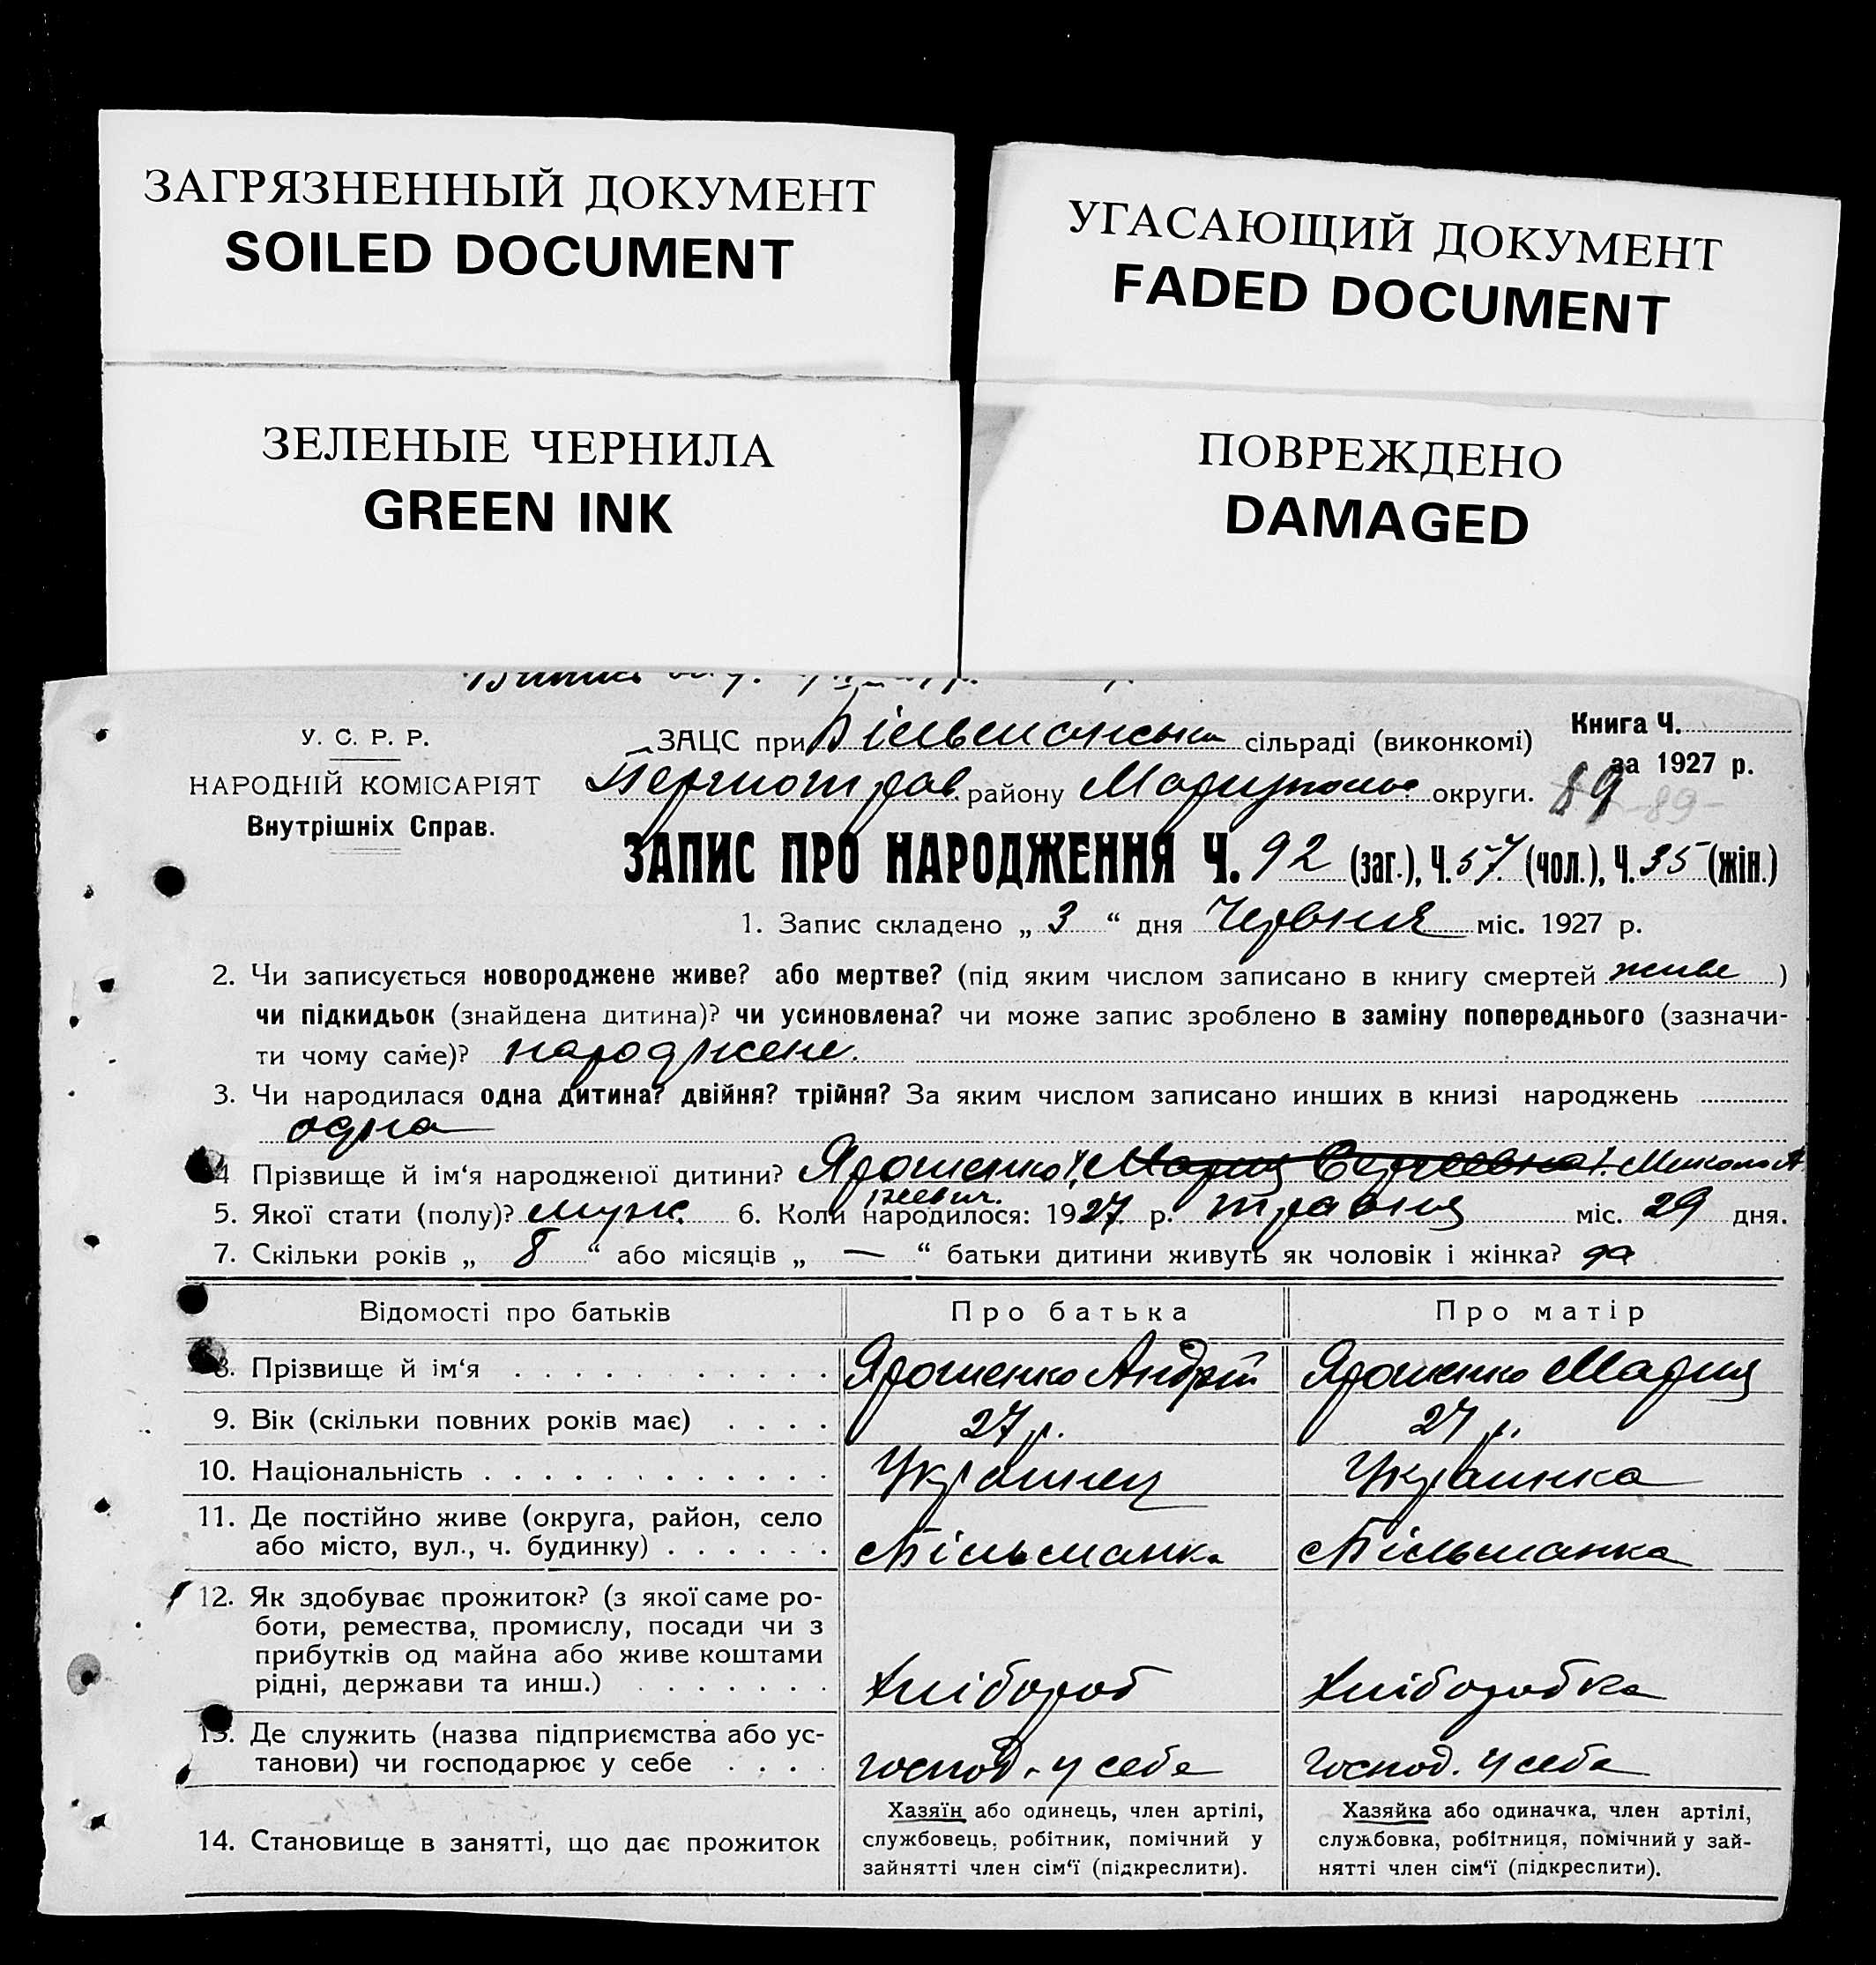 ЗАГРЯЗНЕННЫЙ ДОКУМЕНТ
SOILED DOCUMENT
УГАСАЮЩИЙ ДОКУМЕНТ
FADED DOCUMENT
ЗЕЛЕНЫЕ ЧЕРНИЛА
GREEN INK
ПОВРЕЖДЕНО
DAMAGED
У. С. Р. Р.
НАРОДНІЙ КОМІСАРІЯТ
Внутрішніх Справ.
ЗАЦС при Більманська сільраді (виконкомі)
Першотрав. району Маріупольс. округи.
Книга Ч.
за 1927 р.
89 -89-
ЗАПИС ПРО НАРОДЖЕННЯ Ч. 92 (заг.), Ч. 57 (чол.), Ч. 35 (жін.)
1. Запис складено „ 3 “ дня Червня міс. 1927 р.
2. Чи записується новороджене живе? або мертве? (під яким числом записано в книгу смертей живе )
чи підкидьок (знайдена дитина)? чи усиновлена? чи може запис зроблено в заміну попереднього (зазначи-
ти чому саме)? народжене.
3. Чи народилася одна дитина? двійня? трійня? За яким числом записано инших в книзі народжень
одна
4 Прізвище й ім‘я народженої дитини? Ярошенко Мария Сергеевна Микола А
5. Якої стати (полу)? муж. 6. Коли народилося: 1927 р. травня міс. 29 дня.
7. Скільки років „ 8 “ або місяців „ — “ батьки дитини живуть як чоловік і жінка? да
Відомості про батьків Про батька Про матір
8. Прізвище й ім‘я Ярошенко Андрій Ярошенко Мария
9. Вік (скільки повних років має) 27 р. 27 р.
10. Національність Украинец Украинка
11. Де постійно живе (округа, район, село
або місто, вул., ч. будинку) с Більманка с Більманка
12. Як здобуває прожиток? (з якої саме ро-
боти, ремества, промислу, посади чи з
прибутків од майна або живе коштами
рідні, держави та инш.) Хлібороб Хліборобка
13. Де служить (назва підприємства або ус-
танови) чи господарює у себе господ. у себе господ. у себе
14. Становище в занятті, що дає прожиток
Хазяїн або одинець, член артілі,
службовець, робітник, помічний у
зайнятті член сім‘ї (підкреслити).
Хазяйка або одиначка, член артілі,
службовка, робітниця, помічний у зай-
нятті член сім‘ї (підкреслити).